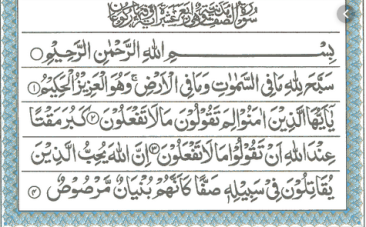 سورة الصف مدنية وهي اربع عشرة اية وفيها ركوعان
بِسْمِ اللّٰهِ الرَّحْمٰنِ الرَّحِيْمِ
سَبَّحَ لِلّٰهِ مَا فِي السَّمٰوٰتِ وَمَا فِي الْاَرْضِ ۚ وَهُوَ الْعَزِيْزُ الْحَكِيْمُ ۝۱
يٰۤاَيُّهَا الَّذِيْنَ اٰمَنُوْا لِمَ تَقُوْلُوْنَ مَا لَا تَفْعَلُوْنَ ۝۲ كَبُرَ مَقْتًا
عِنْدَ اللّٰهِ اَنْ تَقُوْلُوْا مَا لَا تَفْعَلُوْنَ ۝۳ اِنَّ اللّٰهَ يُحِبُّ الَّذِيْنَ
يُقَاتِلُوْنَ فِيْ سَبِيْلِهٖ صَفًّا كَاَنَّهُمْ بُنْيَانٌ مَّرْصُوْصٌ ۝۴